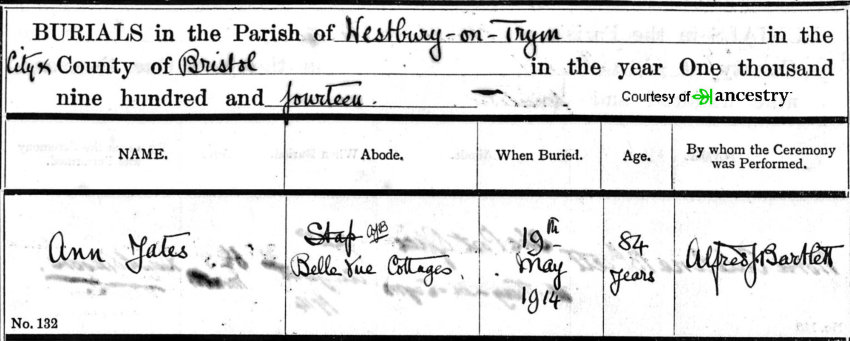 BURIALS in the Parish of Westbury-on-Trym in the
City & County of Bristol in the year One thousand
nine hundred and fourteen. —
Courtesy of ancestry
NAME. Abode. When Buried. Age. By whom the Ceremony was Performed.
Ann Yates
Stap AJB
Belle Vue Cottages.
19th
May
1914
84
years
Alfred J Bartlett
No. 132